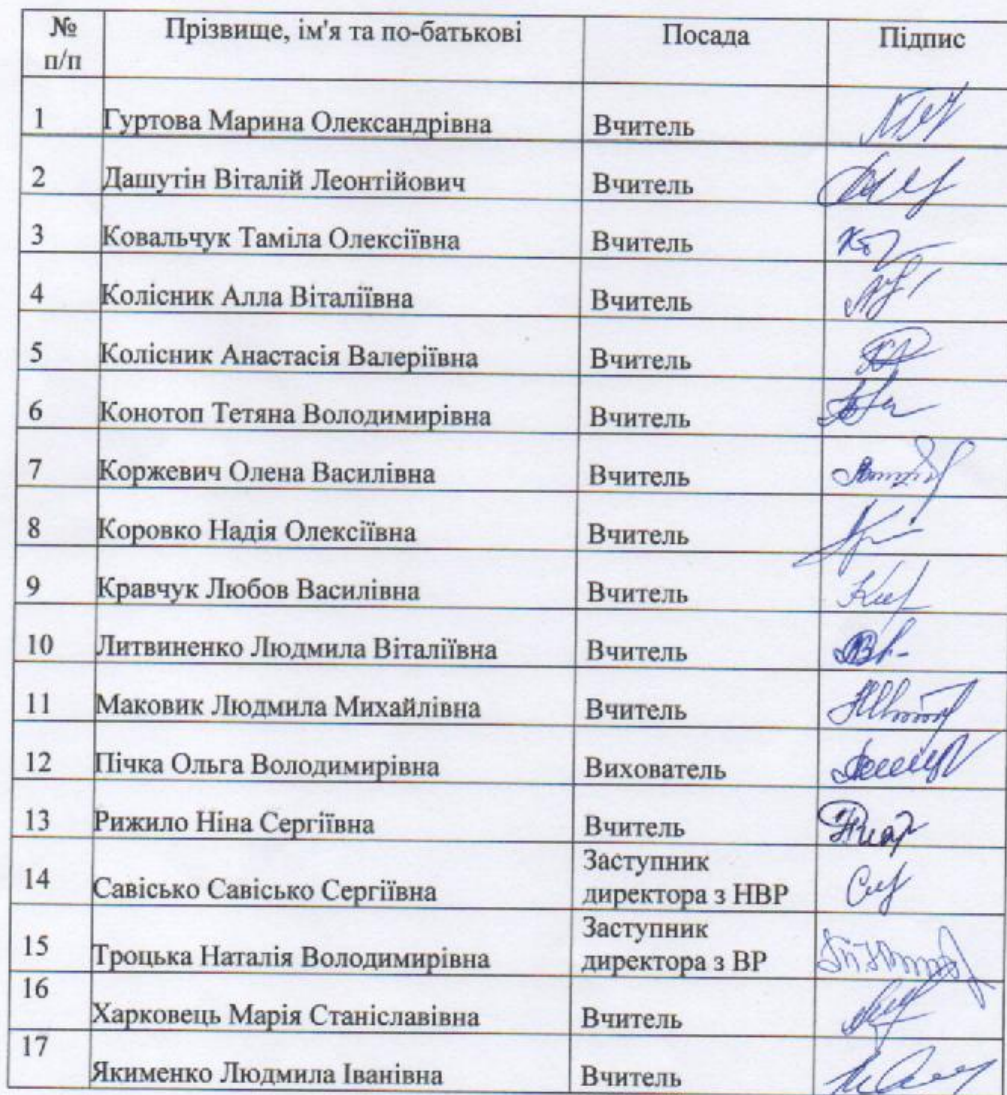 № п/п Прізвище, ім'я та по-батькові Посада Підпис
1 Гуртова Марина Олександрівна Вчитель
2 Дашутін Віталій Леонтійович Вчитель
3 Ковальчук Таміла Олексіївна Вчитель
4 Колісник Алла Віталіївна Вчитель
5 Колісник Анастасія Валеріївна Вчитель
6 Конотоп Тетяна Володимирівна Вчитель
7 Коржевич Олена Василівна Вчитель
8 Коровко Надія Олексіївна Вчитель
9 Кравчук Любов Василівна Вчитель
10 Литвиненко Людмила Віталіївна Вчитель
11 Маковик Людмила Михайлівна Вчитель
12 Пічка Ольга Володимирівна Вихователь
13 Рижило Ніна Сергіївна Вчитель
14 Савісько Савісько Сергіївна Заступник директора з НВР
15 Троцька Наталія Володимирівна Заступник директора з ВР
16 Харковець Марія Станіславівна Вчитель
17 Якименко Людмила Іванівна Вчитель